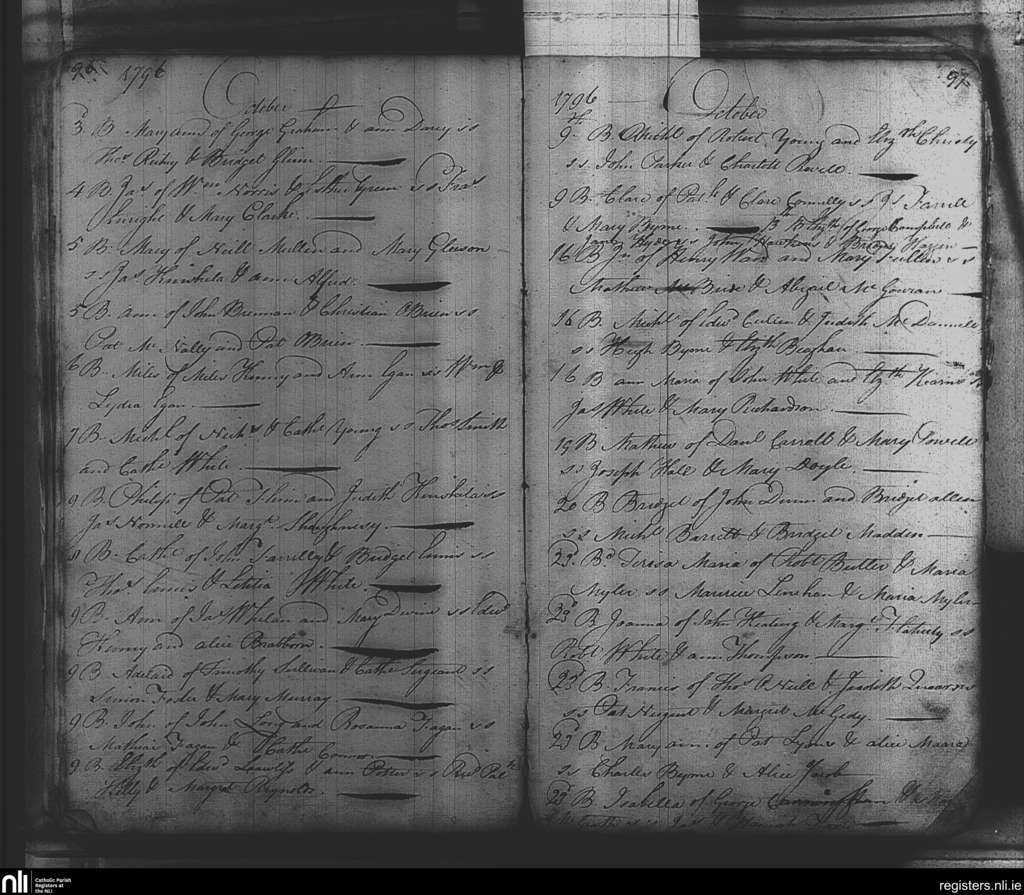 96 1796
October
3d B. Mary Ann of George Graham & Ann Darcy ss
Thos & Bridget Glinn
4 B. Jas of Wm Norris & Esther Green ss Fras
Enright & Mary Clarke
5 B. Mary of Neill Mullen and Mary Gleeson
ss Jas Kinshela & Ann Alford
5 B. Ann of John Brennan & Christian OBrien ss
Pat Mc Nally and Pat OBrien
6 B. Miles of Miles Kenny and Ann Egan ss Wm &
Lydia Egan
7 B. Michl of Nichs & Cathe Young ss Thos Smith
and Cathe White
9 B. Philip of Pat and Judith Kinshela ss
Jas & Margt Shaughnessy
8 B. Cathe of John Farrelly & Bridget Ennis ss
Thos Ennis & Letitia White
9 B. Ann of Jas Whelan and Mary ss Edwd
Henry and Alice Brabborn
9 B. Adelard of Timothy Sullivan & Cathe Sergeand ss
Simon Foster & Mary Murray
9 B. John of John Long and Rosanna Fagan ss
Mathias Fagan & Cathe Connor
9 B. Elizth of Edwd Lawless & Ann Potter ss Revd Patk
Kelly & Margret Reynolds
97
1796 October
9th B. Michl of Robert Young and Elizth Christy
ss John Parker & Charlott
9 B. Clare of Patk & Clare Connolly ss Js Farrell
& Mary Byrne B. Elizth of George Campbell &
Jane Hyde ss John Hawkins & Bridget
16 B Jn of Henry Ward and Mary Fullen ss
Mathew Bride & Abigail Mc Gouran
16 B. Michl of Edwd Cullen & Judith Mc Donnell
ss Hugh Byrne & Elizth Beaghan
16 B Ann Maria of John White and Elizth Kearns ss
Jas White & Mary Richardson
19 B Mathew of Danl Carroll & Mary Powell
ss Joseph Hall & Mary Doyle
20 B Bridget of John Dunn and Bridget Allen
ss Michl Barrett & Bridget Madden
23d Bd Teresa Maria of Robt Butler & Maria
Myler ss Maurice Linehan & Maria Myler
23d B Joanna of John Keating & Margt Flaherty ss
Robt White & Ann Thompson
23d B Francis of Thos ONeill & Judith
ss Pat Nugent & Margret Mc Gedy
23d B Mary Ann of Pat Lyons & Alice Maara
ss Charles Byrne & Alice
23d B Isabella of George Cunningham &
nli
Catholic Parish
Registers at
the NLI
registers.nli.ie